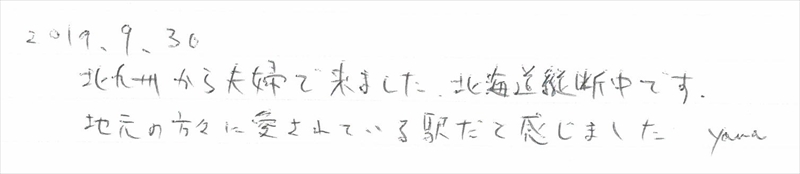 2019、9、30
北九州から夫婦で来ました。北海道縦断中です。
地元の方々に愛されている駅だと感じました yama